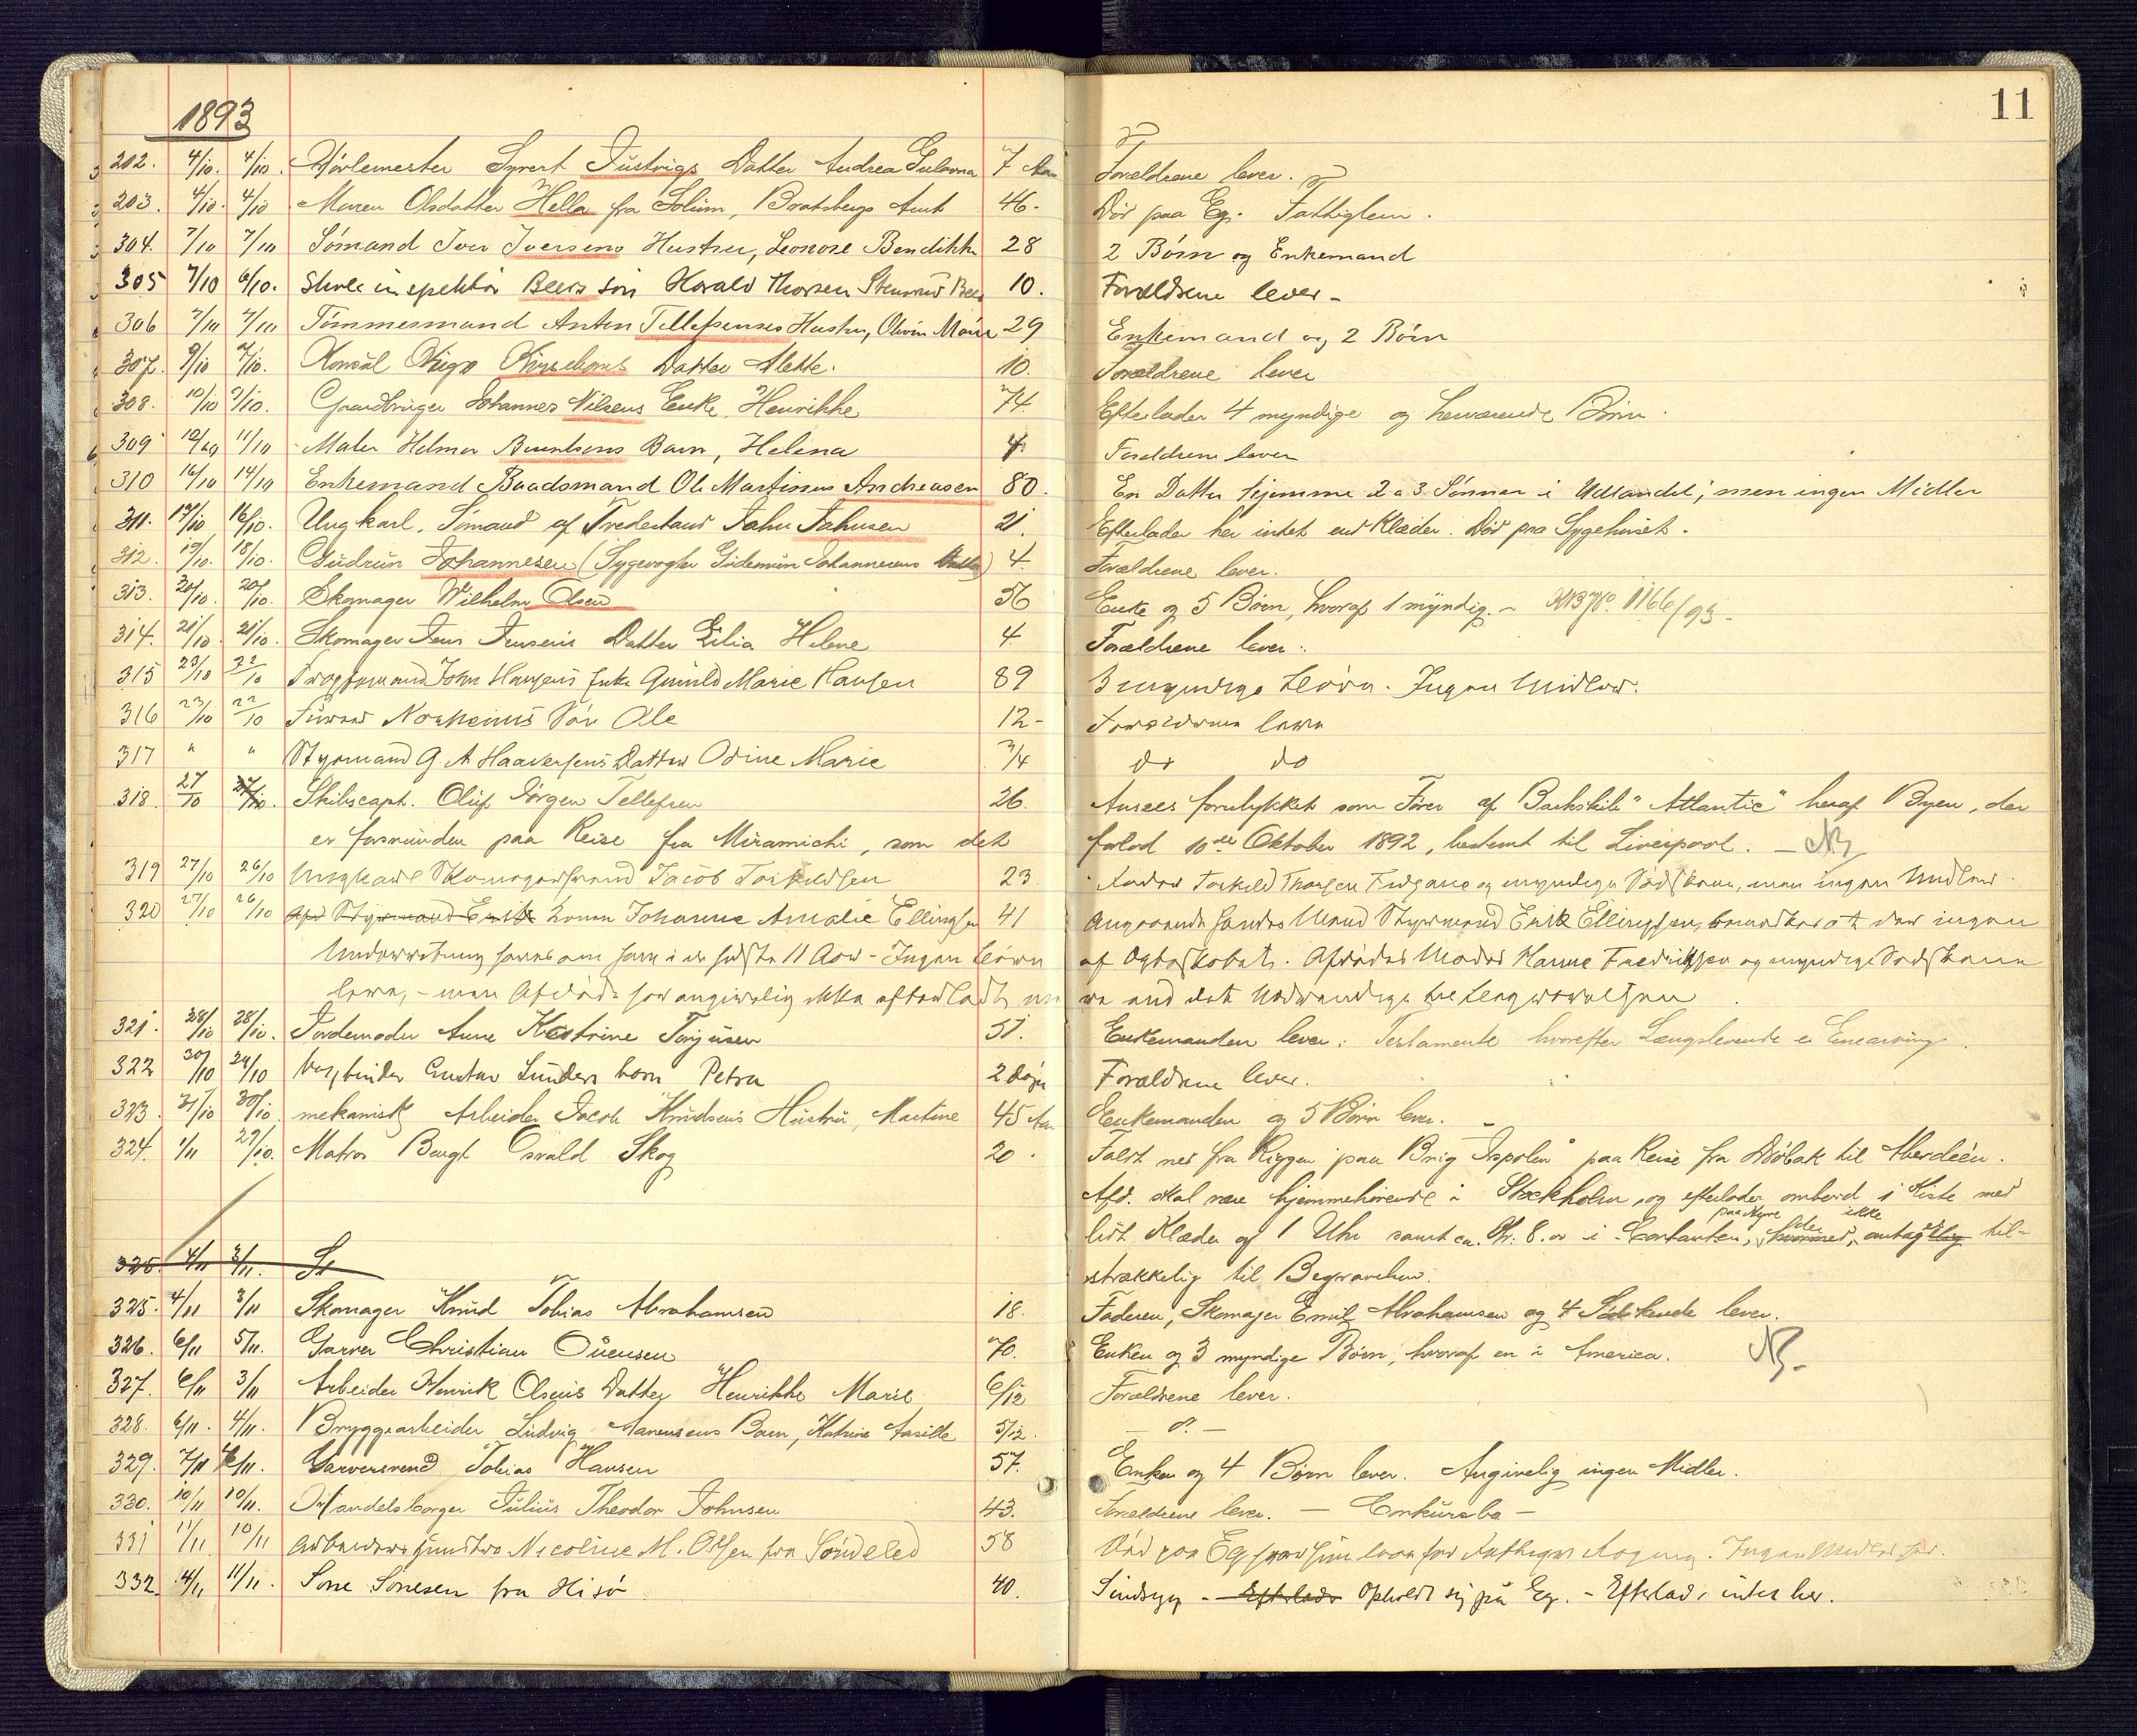 11
1893
202. 4/10. 4/10. Syvert Justvigs Datter Andrea Gulovna 7 Aar Forældrene lever.
203. 4/10. 4/10 Maren Olsdatter Hella fra Solum, Bratsbergs Amt 46. Død paa Eg. Fattiglem.
304. 7/10 7/10 Sømand Iver Iversens Hustru, Leonore Bendikte 28 2 Børn og Enkemand
305 7/10 6/10. Skoleinspektør Beers søn Harald Thorsen Beer 10. Forældrene lever -
306 7/10 7/10 Tømmermand Anten Tellefsenses Hustru, Olivia Marie 29 Enkemand og 2 Børn
307. 9/10 7/10. Konsul Datter Alette. 10. Forældrene lever
308. 10/10 9/10. Gaardbruger Johannes Nilsens Enke, Henrikke 74. Efterlader 4 myndige og herværende Børn.
309 12/10 11/10 Maler Helmer Berntsens Barn, Helena 4 Forældrene lever
310 16/10 14/10 Enkemand Baadsmand Ole Martinus Andreasen 80. En Datter hjemme 2 a 3 Sønner i Udlandet; men ingen Midler
311. 17/10 16/10. Ungkarl, Sømand af Fredestrand John Johnsen 21. Efterlader her intet end Klæder. Død paa Sygehuset.
312. 19/10. 18/10. Gudrun Johannesen (Sygevogter Gudmun Johannesens Datter) 4. Forældrene lever.
313. 20/10. 20/10. Skomager Wilhelm Olsen 56 Enke og 5 Børn, hvoraf 1 myndig. - 1166/93 -
314. 21/10. 21/10. Skomager Jens Jensens Datter Helene 4. Forældrene lever.
315 23/10 22/10 John Hansens Enke Gunild Marie Hansen 89 3 myndige Børn. Ingen Midler.
316 23/10 22/10 Norheims Søn Ole 12- Forældrene lever
317 " " Styrmand G. A Haaversens Datter Odine Marie 3/4 do do
318. 27/10 Skibscapt. Oluf Jørgen Tellefsen 26. Ansees forulykket som Fører af Barkskib "Atlantic" heraf Byen, der
er forsvunden paa Reise fra Miramichi, som det forlod 10de Oktober 1892, bestemt til Liverpool. - NB
319 27/10 26/10 Ungkarl Skomagersvend Jacob Torkildsen 23. Fader Torkild Thorsen og myndige Sødskende, men ingen Midler.
320 27/10 26/10 Konen Johanne Amalie Ellingsen 41 Angaaende hendes Mand Styrmand Erik Ellingsen, bemærkes at der ingen
Underretning haves om ham i de sidste 11 Aar - Ingen Børn af Ægteskabet. Afdødes Moder Hanne Fredriksen og myndige Sødskende
lever, - men Afdøde har angivelig ikke efterladt end det Nødvendige til Begravelsen
321. 28/10 28/10. Jordemoder Anne Katrine Torjusen 51. Enkemanden lever. Testamente hvorefter Længstlevende er Enearving.
322 30/10 29/10 Bogbinder Gustav Lunders barn Petra 2 dage Forældrene lever.
323. 31/10 30/10. mekanisk Arbeider Jacob Knudsens Hustru, Martine 45 Aar Enkemanden og 5 Børn lever. -
324. 1/11 29/10. Matros Bengt Osvald Skog 20. Faldt ned fra Riggen paa Brig "Ispolen" paa Reise fra Drøbak til Aberdeen.
Afd. skal være hjemmehørende i Stockholm, og efterlader ombord 1 Kiste med
lidt Klæder og 1 Uhr samt ca. Kr. 8. or i Contanter, paa Hyre ikke til-
strækkelig til Begravelsen.
325. 4/11 3/11. Sk
325. 4/11 3/11 Skomager Knud Tobias Abrahamsen 18. Faderen, Skomager Emil Abrahamsen og 4 Sødskende lever.
326. 6/11 5/11. Garver Christian Ouensen 70. Enken og 3 myndige Børn, hvoraf en i America. NB-
327. 6/11 3/11 Arbeider Henrik Olsens Datter Henrikke Marie 6/12 Forældrene lever.
328. 6/11. 4/11. Bryggearbeider Ludvig Aanensens Barn, Katrine 5/12. - do. -
329. 7/11 6/11. Garversvend Tobias Hansen 57. Enken og 4 Børn lever. Angivelig ingen Midler.
330. 10/11 10/11. Handelsborger Julius Theodor Johnsen 43. Forældrene lever. - Conkursbo -
331 11/11. 10/11 Arbeiders Hustru Nicoline M. Olsen fra Søndeled 58 Død paa Eg Ingen Midler her.
332. 14/11 11/11. Sone Sonesen fra Hisø 40. Sindsyg - Efterlader Opholdt sig på Eg. - Efterlader intet her.